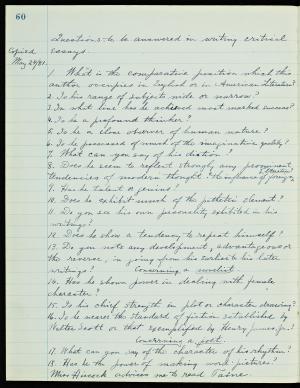 60
Questions to be answered in writing critical
essays.
Copied
May 29/81.
1. What is the comparative position which this
author occupies in English or in American Literature?
2. Is his range of subjects wide or narrow?
3. In what line has he achieved most marked success?
4. Is he a profound thinker?
5. Is he a close observer of human nature?
6. Is he possessed of much of the imaginative quality?
7. What can you say of his diction?
8. Does he seem to reflect strongly any prominent
tendencies of modern thought? The influence of foreign
literature?
9. Has he talent or genius?
10. Does he exhibit much of the pathetic element?
11. Do you see his own personality exhibited in his
writings?
12. Does he show a tendency to repeat himself?
13. Do you note any development, advantageous or
the reverse, in going from his earlier to his later
writings?
Concerning a novelist
14. Has he shown power in dealing with female
character?
15. Is his chief strength in plot or character drawing?
16. Is he nearer the standard of fiction established by
Walter Scott or that exemplified by Henry James, Jr.?
Concerning a poet
17. What can you say of the character of his rhythm?
18. Has he the power of making word pictures?
Miss Hiscock advises me to read Taine.